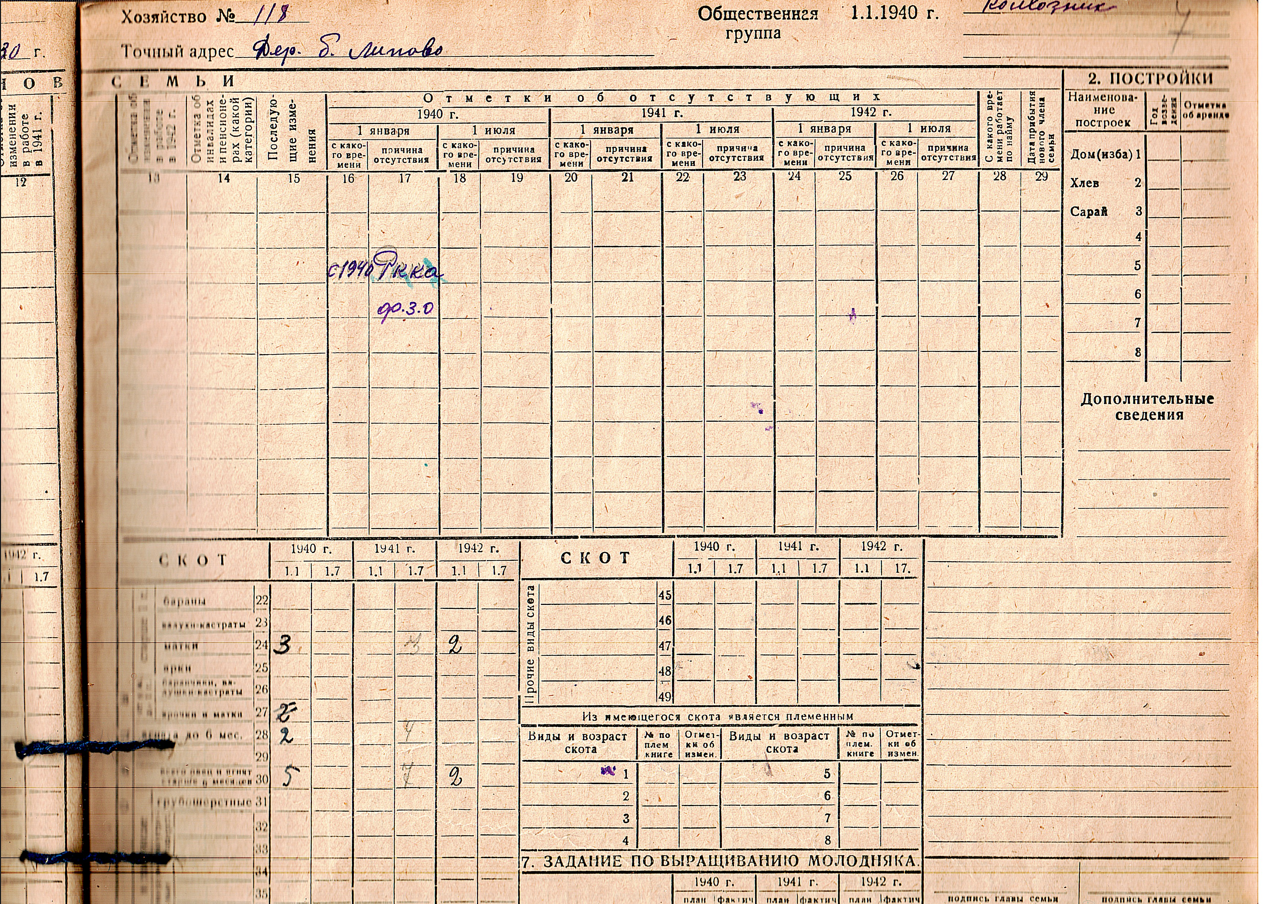 Хозяйство № 118
Общественная группа 1.1.1940 г. Колхозник
Точный адрес Дер. б. Липово
30 г.
НОВ
СЕМЬИ
2. ПОСТРОЙКИ
изменении в работе в 1941 г.
12
в работе в 1942 г.
Отметка об инвалидах и пенсионерах (какой категории)
Последующие изменения
Отметки об отсутствующих
1940 г. 1941 г. 1942 г.
1 января 1 июля 1 января 1 июля 1 января 1 июля
с какого времени причина отсутствия с какого времени причина отсутствия с какого времени причина отсутствия с какого времени причина отсутствия с какого времени причина отсутствия с какого времени причина отсутствия
С какого времени работает по найму
Дата прибытия нового члена семьи
13 14 15 16 17 18 19 20 21 22 23 24 25 26 27 28 29
с 1940 Ркка
ф.з.о
Наименование построек
Год возведения
Отметка об аренде
Дом (изба) 1
Хлев 2
Сарай 3
4
5
6
7
8
Дополнительные сведения
1942 г.
1.1 1.7
СКОТ 1940 г. 1941 г. 1942 г.
1.1 1.7 1.1 1.7 1.1 1.7
бараны 22
валухи-кастраты 23
матки 24 3 3 2
ярки 25
баранчики, валушки-кастраты 26
ярочки и матки 27 2
ягнята до 6 мес. 28 2 4
29
всего овец и ягнят старше 6 месяцев 30 5 7 2
грубошерстные 31
32
33
34
35
СКОТ 1940 г. 1941 г. 1942 г.
1.1 1.7 1.1 1.7 1.1 17.
Прочие виды скота
45
46
47
48
49
Из имеющегося скота является племенным
Виды и возраст скота № по плем. книге Отметки об измен. Виды и возраст скота № по плем. книге Отметки об измен.
1 5
2 6
3 7
4 8
7. ЗАДАНИЕ ПО ВЫРАЩИВАНИЮ МОЛОДНЯКА.
1940 г. 1941 г. 1942 г.
план фактич план фактич план фактич
подпись главы семьи подпись главы семьи